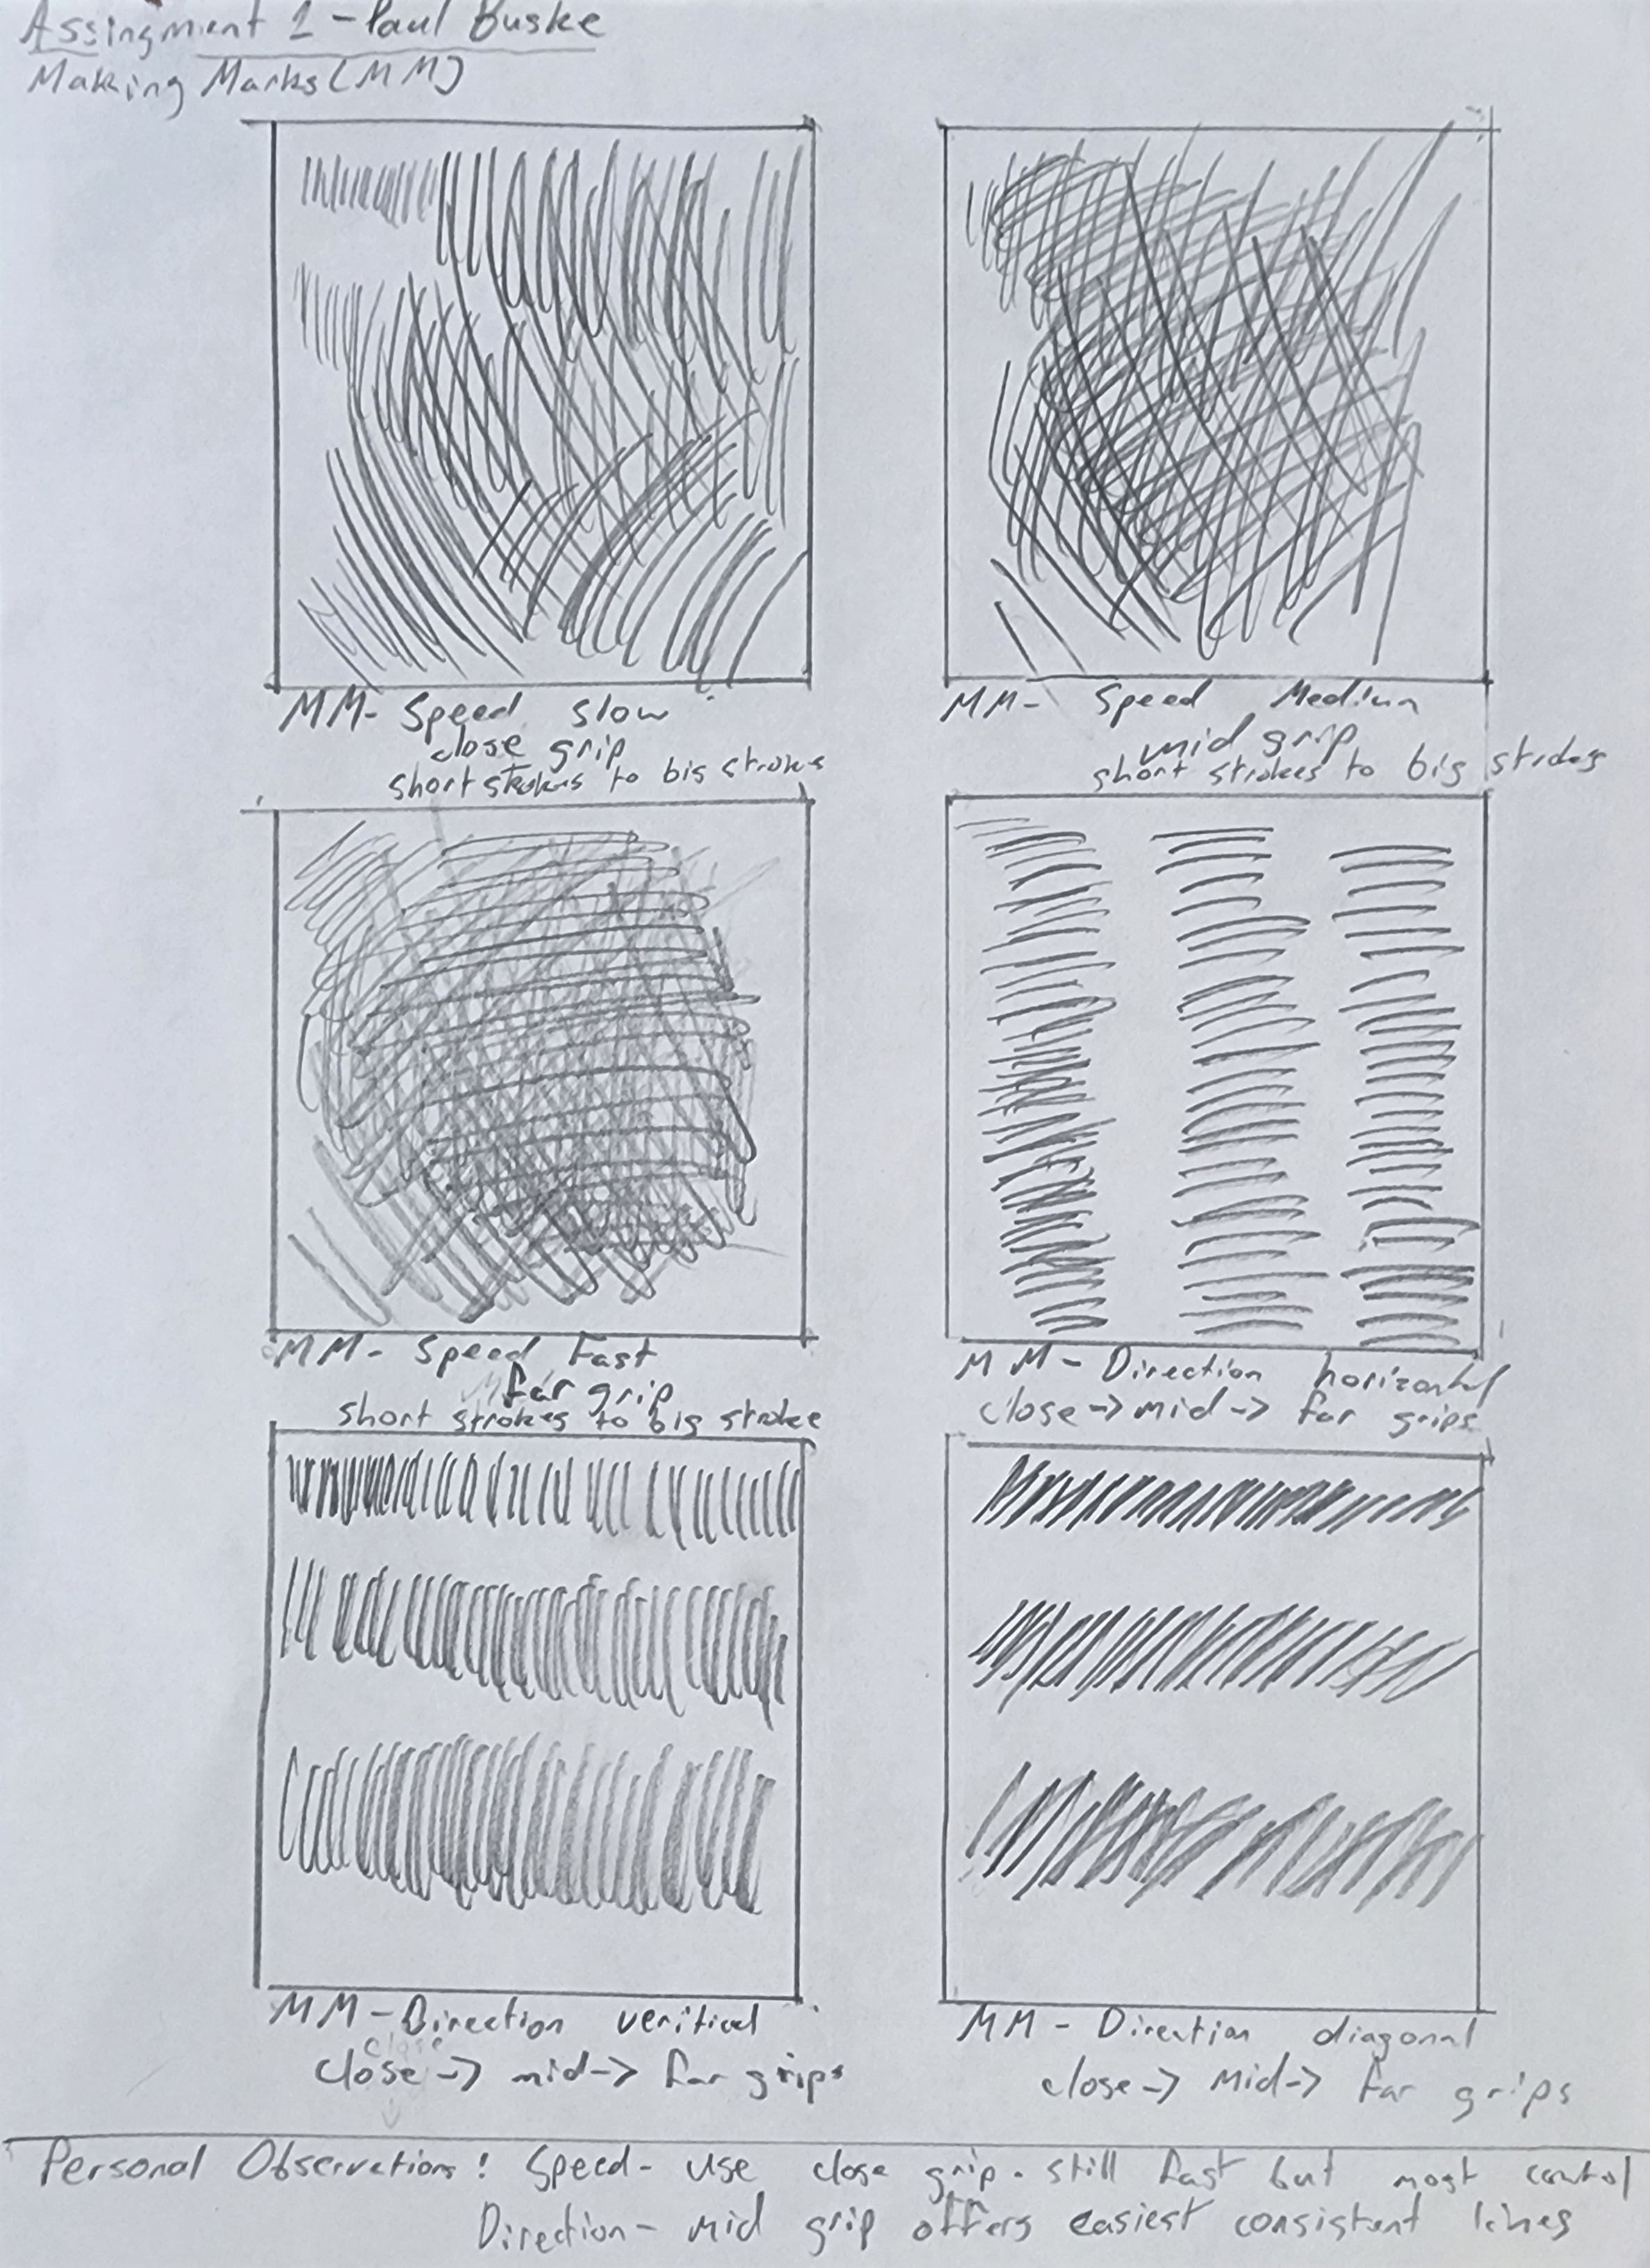 Assingment 1 - Paul Buske
Making Marks (MM)
MM- Speed slow
close grip
short strokes to big strokes
MM- Speed Medium
mid grip
short strokes to big strokes
MM- Speed Fast
far grip
short strokes to big stroke
MM- Direction horizontal
close -> mid -> far grips
MM- Direction veritical
close
close -> mid -> far grips
MM - Direction diagonal
close -> Mid -> far grips
Personal Observations: Speed- use close grip. still fast but most control
Direction- mid grip offers easiest consistent lines